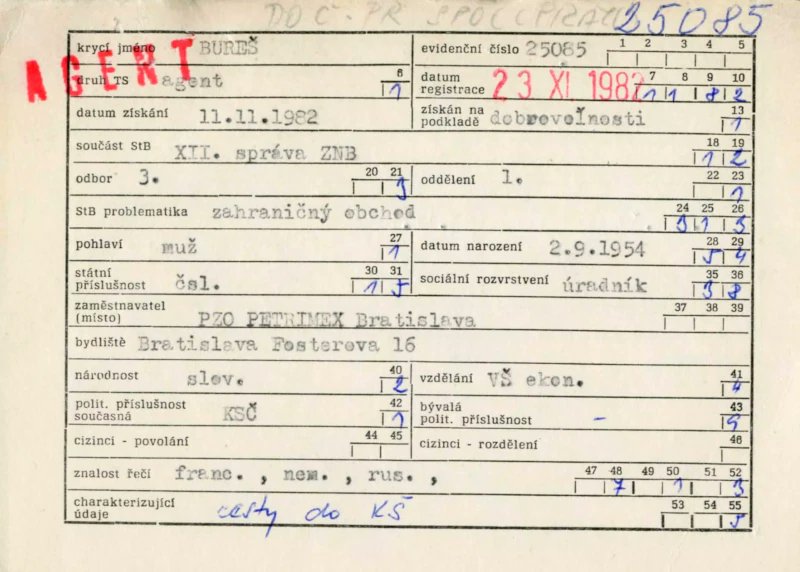 25085
AGENT
krycí jméno BUREŠ evidenční číslo 25085 1 2 3 4 5
druh TS agent 6 1 datum registrace 23 XI. 1982 7 8 9 10 1 1 8 2
datum získání 11.11.1982 získán na podkladě dobrovolnosti 13 1
součást StB XII. správa ZNB 18 19 1 2
odbor 3. 20 21 3 oddělení 1. 22 23 1
StB problematika zahraničný obchod 24 25 26 3 1 3
pohlaví muž 27 1 datum narození 2.9.1954 28 29 5 4
státní příslušnost čsl. 30 31 1 5 sociální rozvrstvení úradník 35 36 3 8
zaměstnavatel (místo) PZO PETRIMEX Bratislava 37 38 39
bydliště Bratislava Fosterova 16
národnost slov. 40 2 vzdělání VŠ ekon. 41 4
polit. příslušnost současná KSČ 42 1 bývalá polit. příslušnost – 43 9
cizinci - povolání 44 45 cizinci - rozdělení 46
znalost řečí franc., nem., rus., 47 48 49 50 51 52 7 1 3
charakterizující údaje cesty do KŠ 53 54 55 5